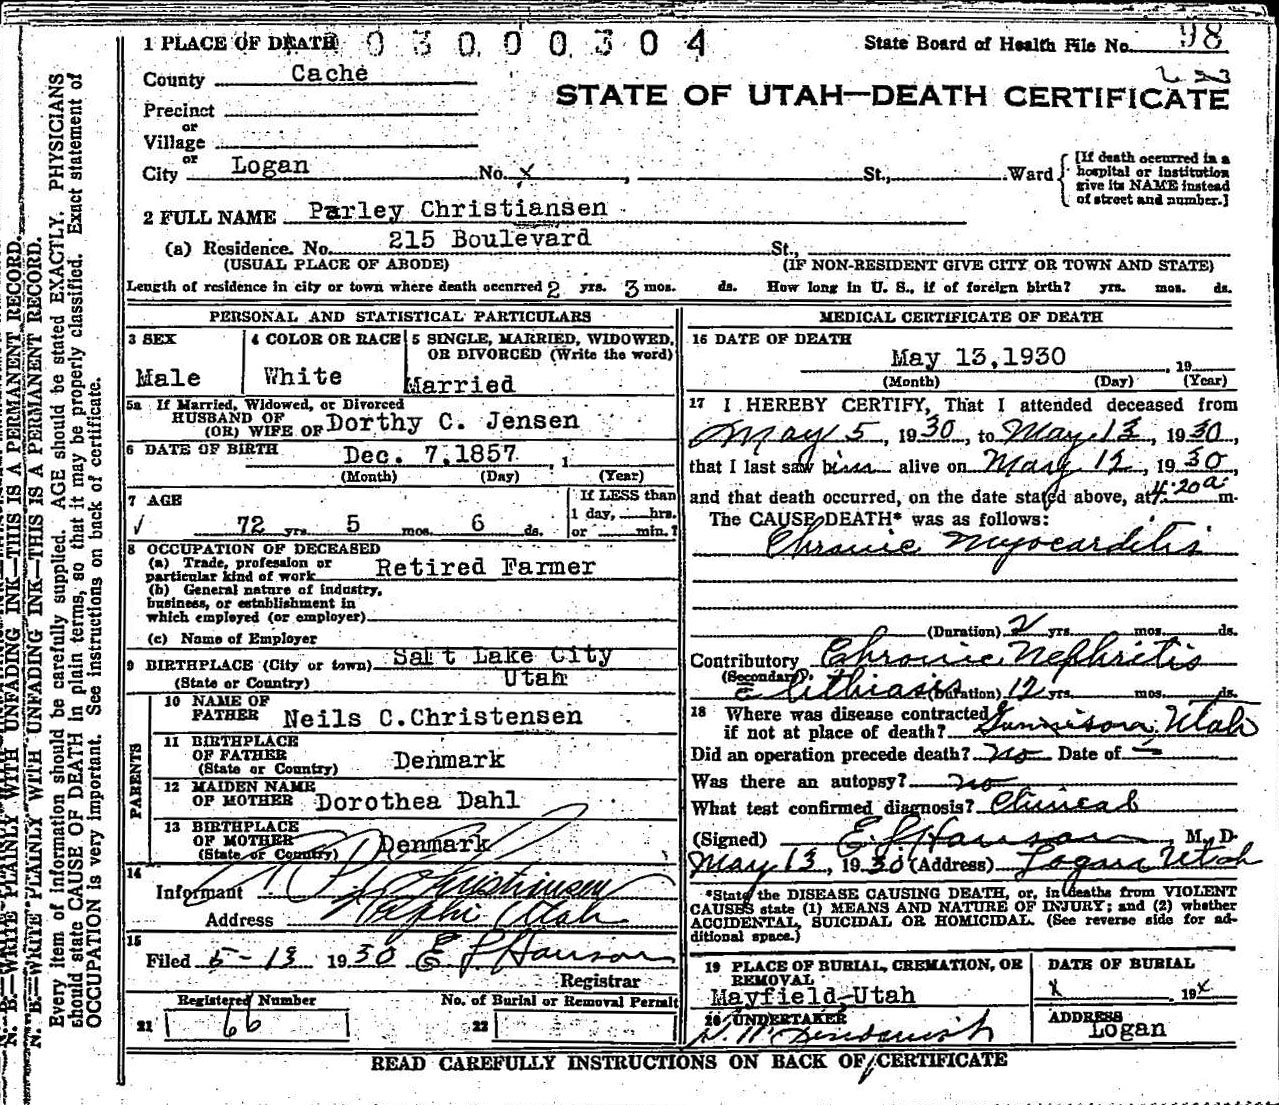 1 PLACE OF DEATH 0 3 0 0 0 3 0 4 State Board of Health File No. 98
County Cache
STATE OF UTAH—DEATH CERTIFICATE
Precinct
or
Village
or
City Logan No. x , St., Ward {[If death occurred in a hospital or institution give its NAME instead of street and number.]
2 FULL NAME Parley Christiansen
(a) Residence. No. 215 Boulevard St.,
(USUAL PLACE OF ABODE) (IF NON-RESIDENT GIVE CITY OR TOWN AND STATE)
Length of residence in city or town where death occurred 2 yrs. 3 mos. ds. How long in U. S., if of foreign birth? yrs. mos. ds.
PERSONAL AND STATISTICAL PARTICULARS
3 SEX
Male
4 COLOR OR RACE
White
5 SINGLE, MARRIED, WIDOWED,
OR DIVORCED (Write the word)
Married
5a If Married, Widowed, or Divorced
HUSBAND OF
(OR) WIFE OF Dorthy C. Jensen
6 DATE OF BIRTH Dec. 7,1857 , 1
(Month) (Day) (Year)
7 AGE
✓ 72 yrs. 5 mos. 6 ds.
If LESS than
1 day, hrs.
or min.?
8 OCCUPATION OF DECEASED
(a) Trade, profession or
particular kind of work Retired Farmer
(b) General nature of industry,
business, or establishment in
which employed (or employer)
(c) Name of Employer
9 BIRTHPLACE (City or town) Salt Lake City
(State or Country) Utah
PARENTS
10 NAME OF
FATHER Neils C.Christensen
11 BIRTHPLACE
OF FATHER
(State or Country) Denmark
12 MAIDEN NAME
OF MOTHER Dorothea Dahl
13 BIRTHPLACE
OF MOTHER
(State or Country) Denmark
14
Informant Christiansen
Address Nephi Utah
15
Filed 5-13 1930 E L Hanson
Registrar
Registered Number
21 66
No. of Burial or Removal Permit
22
MEDICAL CERTIFICATE OF DEATH
16 DATE OF DEATH
May 13,1930 , 19
(Month) (Day) (Year)
17 I HEREBY CERTIFY, That I attended deceased from
May 5, 1930, to May 13, 1930,
that I last saw him alive on May 12, 1930,
and that death occurred, on the date stated above, at 4:20a m.
The CAUSE DEATH* was as follows:
Chronic Myocarditis
(Duration) 2 yrs. mos. ds.
Contributory Chronic Nephritis
(Secondary)
lithiasis (Duration) 12 yrs. mos. ds.
18 Where was disease contracted
if not at place of death? Gunnison, Utah
Did an operation precede death? No Date of –
Was there an autopsy? no
What test confirmed diagnosis? Clinical
(Signed) E L Hanson M. D.
May 13, 1930 (Address) Logan Utah
*State the DISEASE CAUSING DEATH, or, in deaths from VIOLENT
CAUSES state (1) MEANS AND NATURE OF INJURY; and (2) whether
ACCIDENTAL, SUICIDAL OR HOMICIDAL. (See reverse side for ad-
ditional space.)
19 PLACE OF BURIAL, CREMATION, OR
REMOVAL
Mayfield, Utah
DATE OF BURIAL
x 19x
20 UNDERTAKER
ADDRESS
Logan
READ CAREFULLY INSTRUCTIONS ON BACK OF CERTIFICATE
N. B.—WRITE PLAINLY WITH UNFADING INK—THIS IS A PERMANENT RECORD.
N. B.—WRITE PLAINLY WITH UNFADING INK—THIS IS A PERMANENT RECORD.
Every item of information should be carefully supplied. AGE should be stated EXACTLY. PHYSICIANS
should state CAUSE OF DEATH in plain terms, so that it may be properly classified. Exact statement of
OCCUPATION is very important. See instructions on back of certificate.